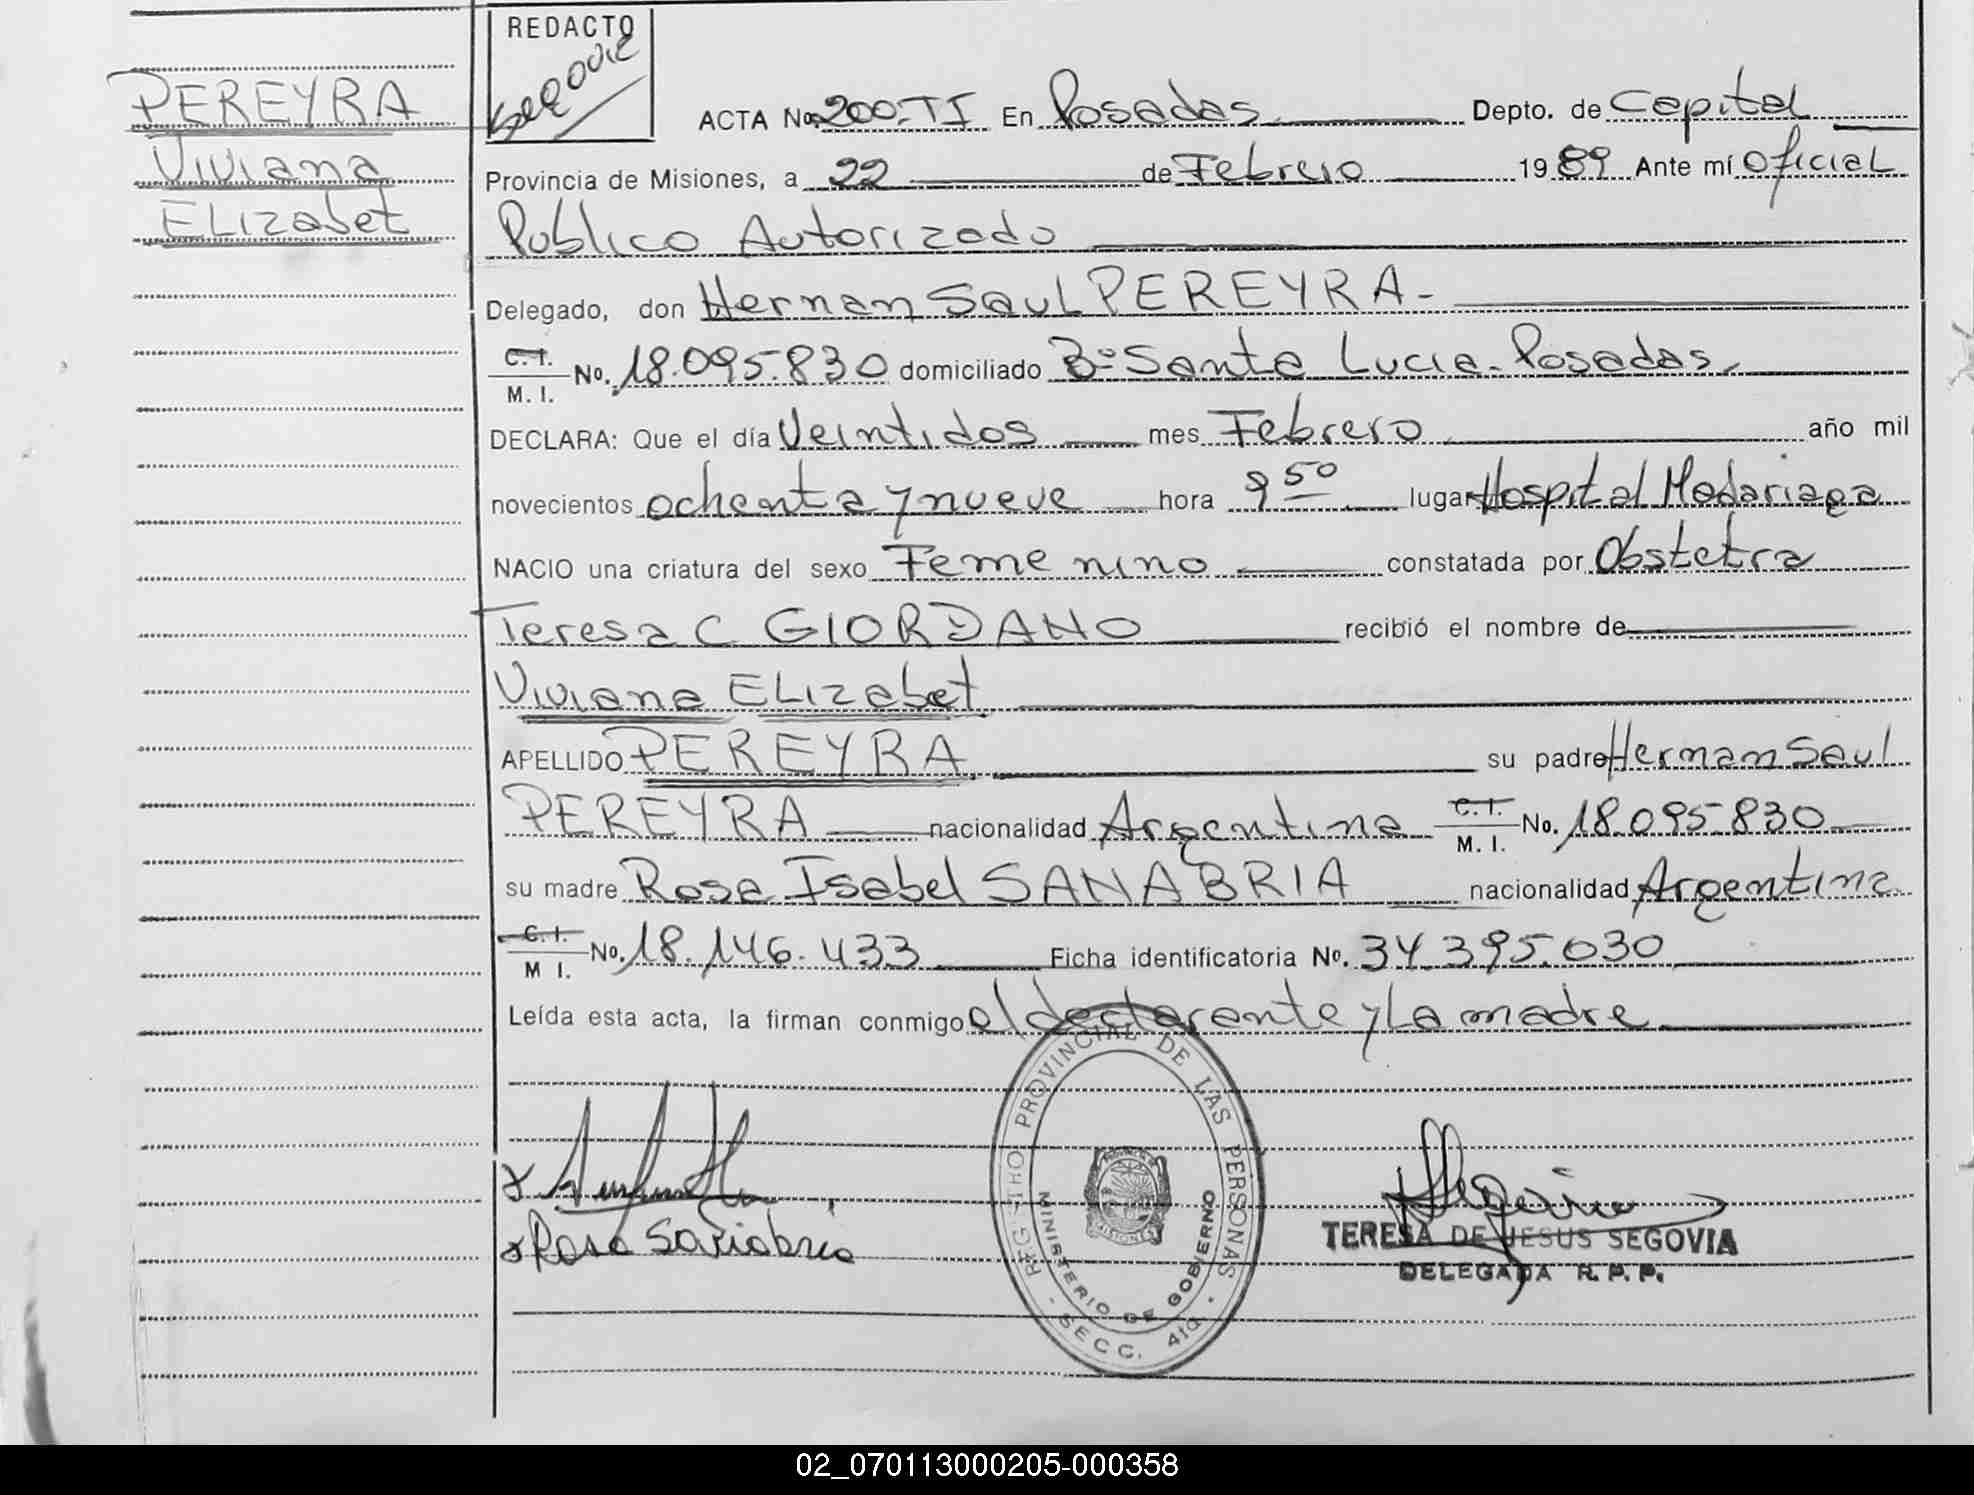 REDACTO
Segovia
PEREYRA
Viviana
ELizabet
ACTA No. 200.TI En Posadas Depto. de Capital
Provincia de Misiones, a 22 de Febrero 1989 Ante mí Oficial
Publico Autorizado
Delegado, don Hernan Saul PEREYRA-
C.I.
M. I. No. 18.095.830 domiciliado B° Santa Lucia-Posadas
DECLARA: Que el día Veintidos mes Febrero año mil
novecientos ochenta y nueve hora 9 50 lugar Hospital Madariaga
NACIO una criatura del sexo Femenino constatada por Obstetra
Teresa C GIORDANO recibió el nombre de
Viviana ELizabet
APELLIDO PEREYRA su padre Hernan Saul
PEREYRA nacionalidad Argentina C.I. M. I. No. 18.095.830
su madre Rosa Isabel SANABRIA nacionalidad Argentina
C.I. M I. No. 18.146.433 Ficha identificatoria No. 34.395.030
Leída esta acta, la firman conmigo el declarante y La madre
REGISTRO PROVINCIAL DE LAS PERSONAS
MINISTERIO DE GOBIERNO
- SECC. 4ta. -
MISIONES
x Rosa Sanabria
TERESA DE JESUS SEGOVIA
DELEGADA R. P. P.
02_070113000205-000358